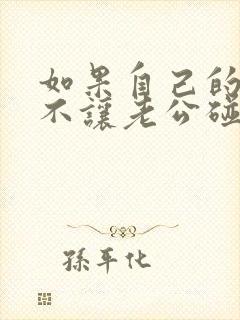 如果自己的
不讓老公碰
孫平化